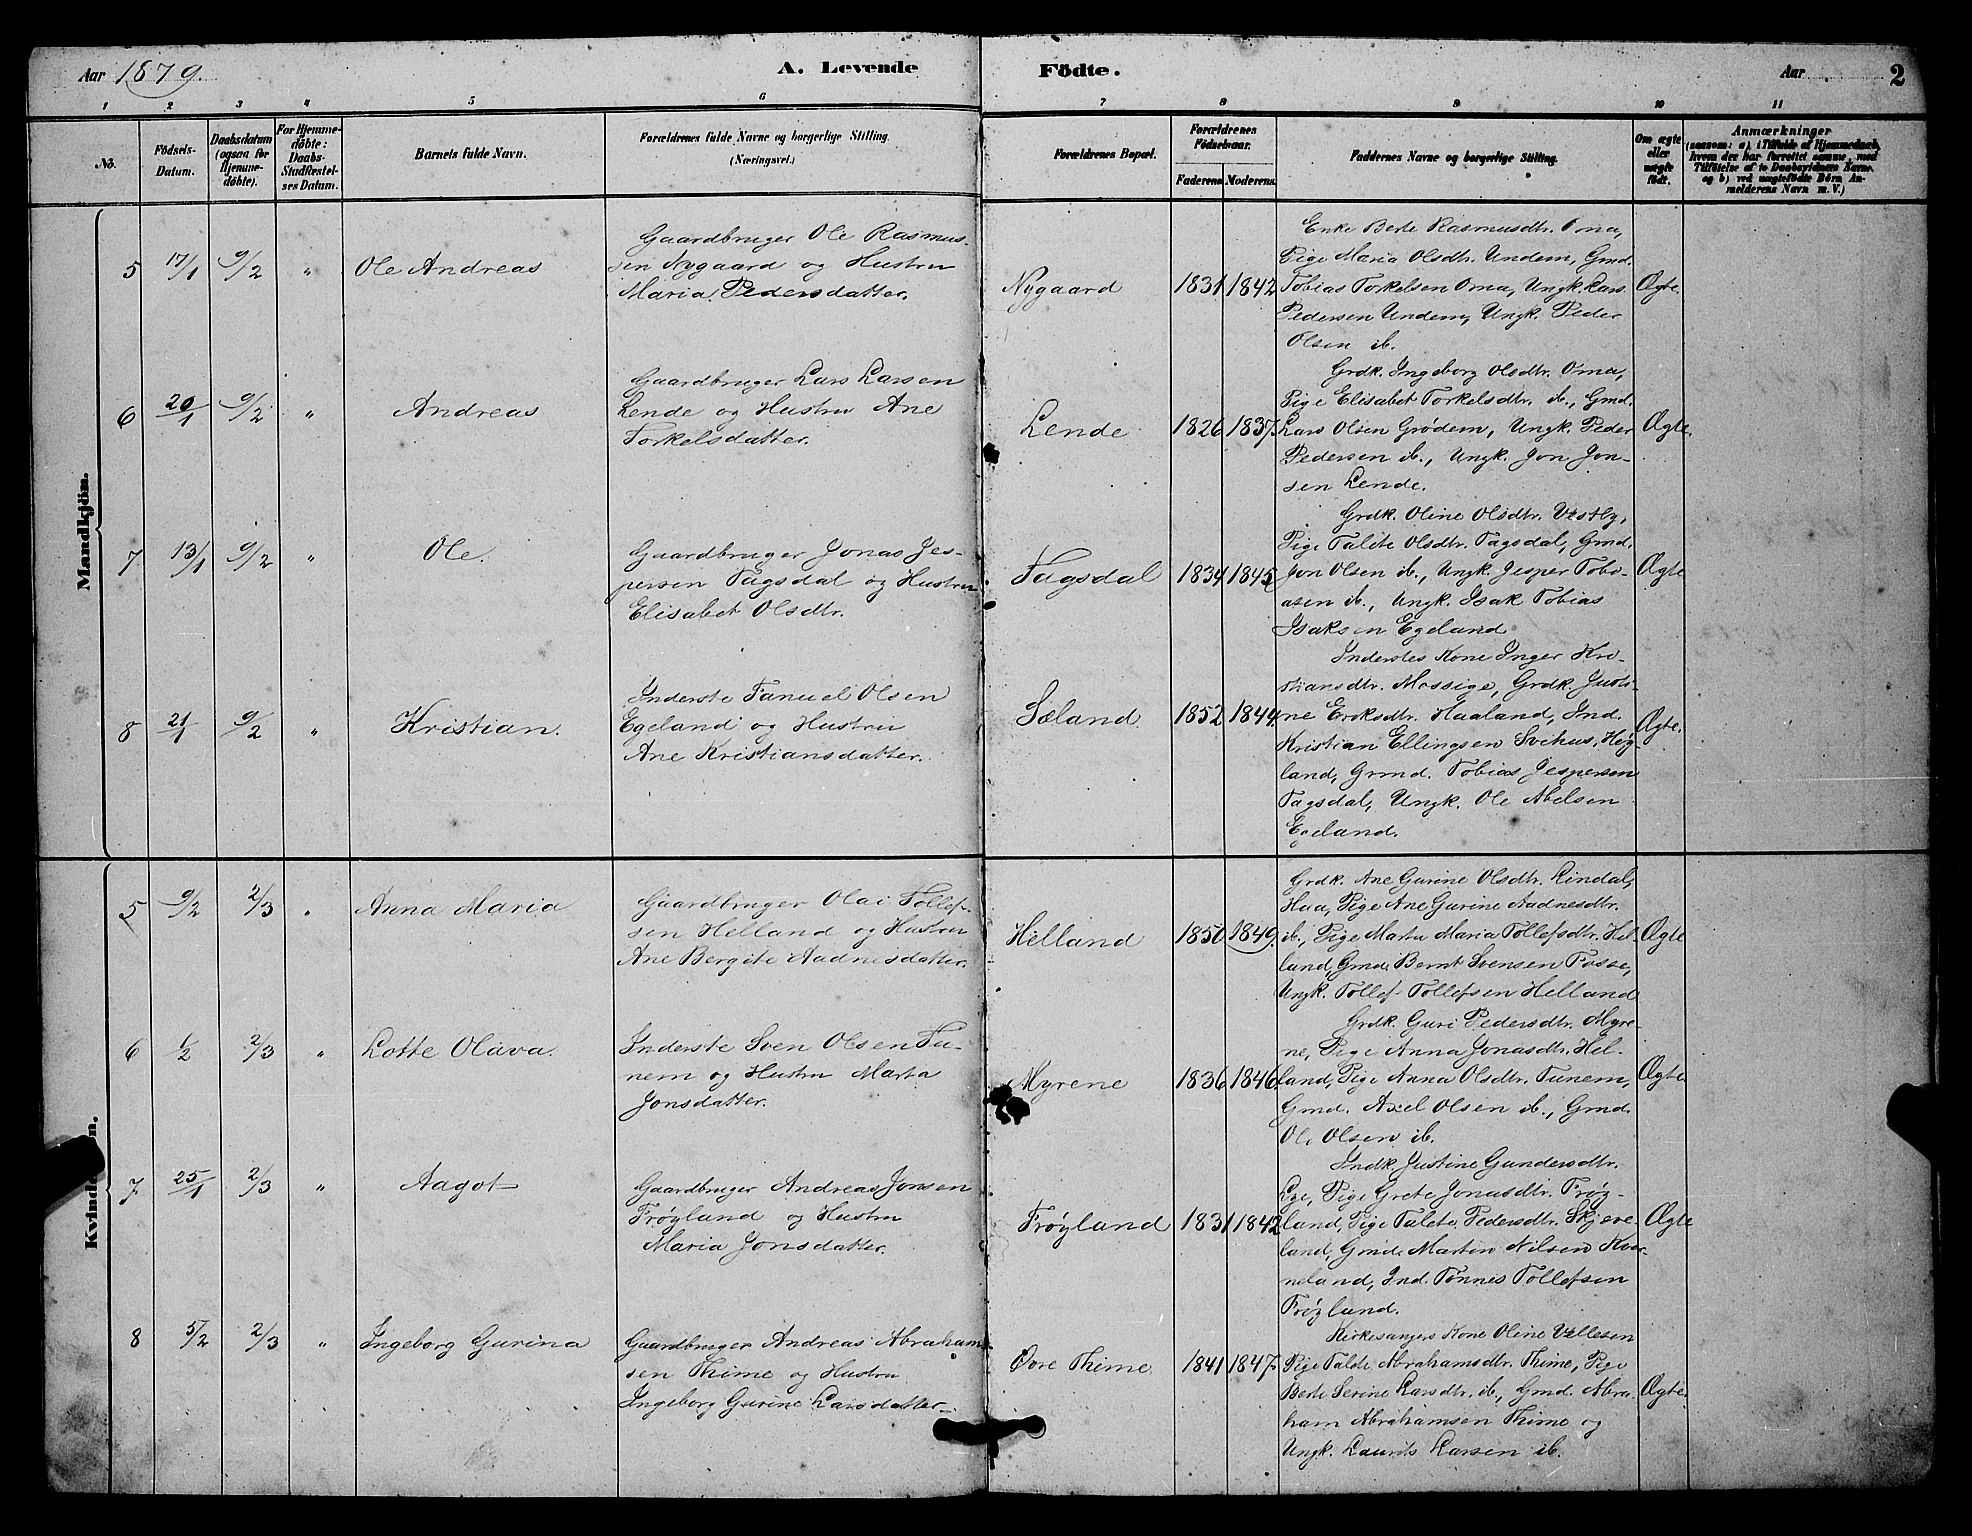 Aar 1879. A. Levende Födte. Aar 2
1 2 3 4 5 6 7 8 9 10 11
No.
Födsels-
Datum.
Daabsdatum
(ogsaa for
Hjemme-
döbte).
For Hjemme-
döbte:
Daabs-
Stadfæstel-
ses Datum.
Barnets fulde Navn.
Forældrenes fulde Navne og borgerlige Stilling.
(Næringsvei.)
Forældrenes Bopæl.
Forældrenes
Födselsaar.
Faderens. Moderens.
Faddernes Navne og borgerlige Stilling.
Om ægte
eller
uægte
födt.
Anmærkninger
(saasom: a) i Tilfælde af Hjemmedaab,
hvem der har forrettet samme, med
Tilföielse af to Daabsvidners Navne.
og b) ved uægtefödte Börn An-
melderens Navn m. V.)
Mandkjön.
5 17/1 9/2 " Ole Andreas
Gaardbruger Ole Rasmus-
sen Nygaard og Hustru
Maria Pedersdatter.
Nygaard 1831 1842
Enke Berte Rasmusdtr. Orna,
Pige Maria Olsdtr. Undem, Gmd.
Tobias Torkelsen Orna, Ungk. Lars
Pedersen Undem, Ungk. Peder
Olsen ib.
Ægte.
6 20/1 9/2 " Andreas
Gaardbruger Lars Larsen
Lende og Hustru Ane
Torkelsdatter.
Lende 1826 1837.
Grdk. Ingeborg Olsdtr. Orna,
Pige Elisabet Torkelsdtr. ib., Gmd.
Lars Olsen Grødem, Ungk. Peder
Pedersen ib., Ungk. Jon Jon-
sen Lende.
Ægte.
7 13/1 9/2 " Ole.
Gaardbruger Jonas Jes-
persen Tagsdal og Hustru
Elisabet Olsdtr.
Tagsdal 1834 1845
Grdk. Oline Olsdtr. Vestly,
Pige Talite Olsdtr. Tagsdal, Gmd.
Jon Olsen ib., Ungk. Jesper Tobi-
asen ib., Ungk. Isak Tobias
Isaksen Egeland
Ægte
8 21/1 9/2 " Kristian.
Inderste Fanuel Olsen
Egeland og Hustru
Ane Kristiansdatter.
Sæland. 1852 1844.
Inderstes Kone Inger Kri-
stiansdtr. Mossige, Grdk. Justi-
ne Eriksdtr. Haaland, Ind.
Kristian Ellingsen Svihus, Høg-
land, Grmd. Tobias Jespersen
Tagsdal, Ungk. Ole Abelsen
Egeland.
Ægte.
5 9/2 2/3 " Anna Maria
Gaardbruger Olai Tollef-
sen Helland og Hustru
Ane Bergite Aadnesdatter.
Helland 1850 1849.
Grdk. Ane Gurine Olsdtr. Lindal,
Haa, Pige Ane Gurine Aadnesdtr.
ib., Pige Marta Maria Tollefsdtr. Hel-
land, Gmd. Bernt Svensen Fosse,
Ungk. Tollef Tollefsen Helland
Ægte
6 1/2 2/3 " Lotte Olava.
Inderste Sven Olsen Tu-
nem og Hustru Marta
Jonsdatter.
Myrene 1836 1846.
Grdk. Guri Pedersdtr. Myre-
ne, Pige Anna Jonasdtr. Hel-
land, Pige Anna Olsdtr. Tunem,
Gmd. Axel Olsen ib., Gmd.
Ole Olsen ib.
Ægte.
7 25/1 2/3 " Aagot
Gaardbruger Andreas Jonsen
Frøyland og Hustru
Maria Jonsdatter.
Frøyland 1831 1842
Indk. Justine Gundersdtr.
Lye, Pige Grete Jonasdtr. Frøy-
land, Pige Talete Pedersdtr. Skjeve-
land, Gmd. Martin Nilsen Kver-
neland, Ind. Tønnes Tollefsen
Frøyland.
Ægte
8 5/2 2/3 " Ingeborg Gurina
Gaardbruger Andreas Abraham-
sen Thime og Hustru
Ingeborg Gurine Larsdatter.
Øvre Thime 1841 1847.
Kirkesangers Kone Oline Vellesen
Pige Talite Abrahamsdtr. Thime, Pige
Berte Serine Larsdtr. ib., Gmd. Abra-
ham Abrahamsen Thime og
Ungk. Laurits Larsen ib.
Ægte.